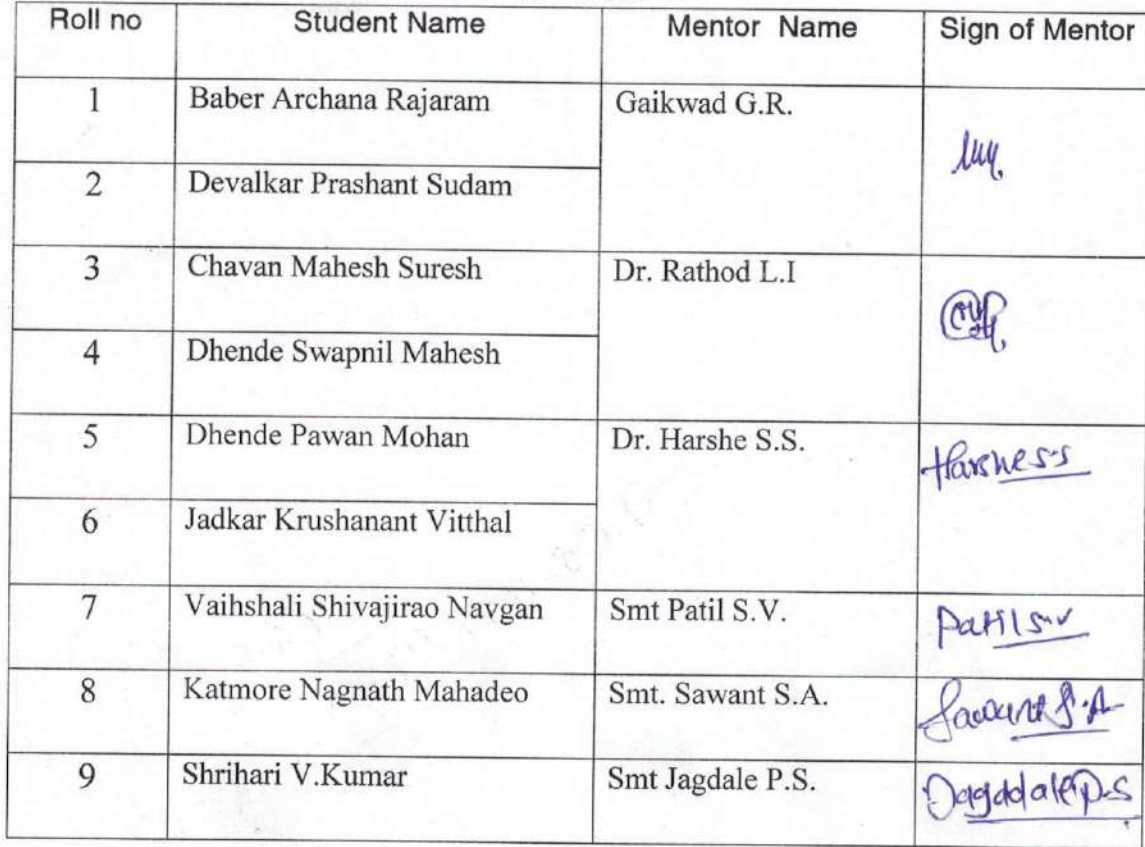 Roll no Student Name Mentor Name Sign of Mentor
1 Baber Archana Rajaram Gaikwad G.R.
2 Devalkar Prashant Sudam
3 Chavan Mahesh Suresh Dr. Rathod L.I
4 Dhende Swapnil Mahesh
5 Dhende Pawan Mohan Dr. Harshe S.S. Harshe s.s
6 Jadkar Krushanant Vitthal
7 Vaihshali Shivajirao Navgan Smt Patil S.V. Patil s.v
8 Katmore Nagnath Mahadeo Smt. Sawant S.A. Sawant S.A
9 Shrihari V.Kumar Smt Jagdale P.S. Jagddale P.S